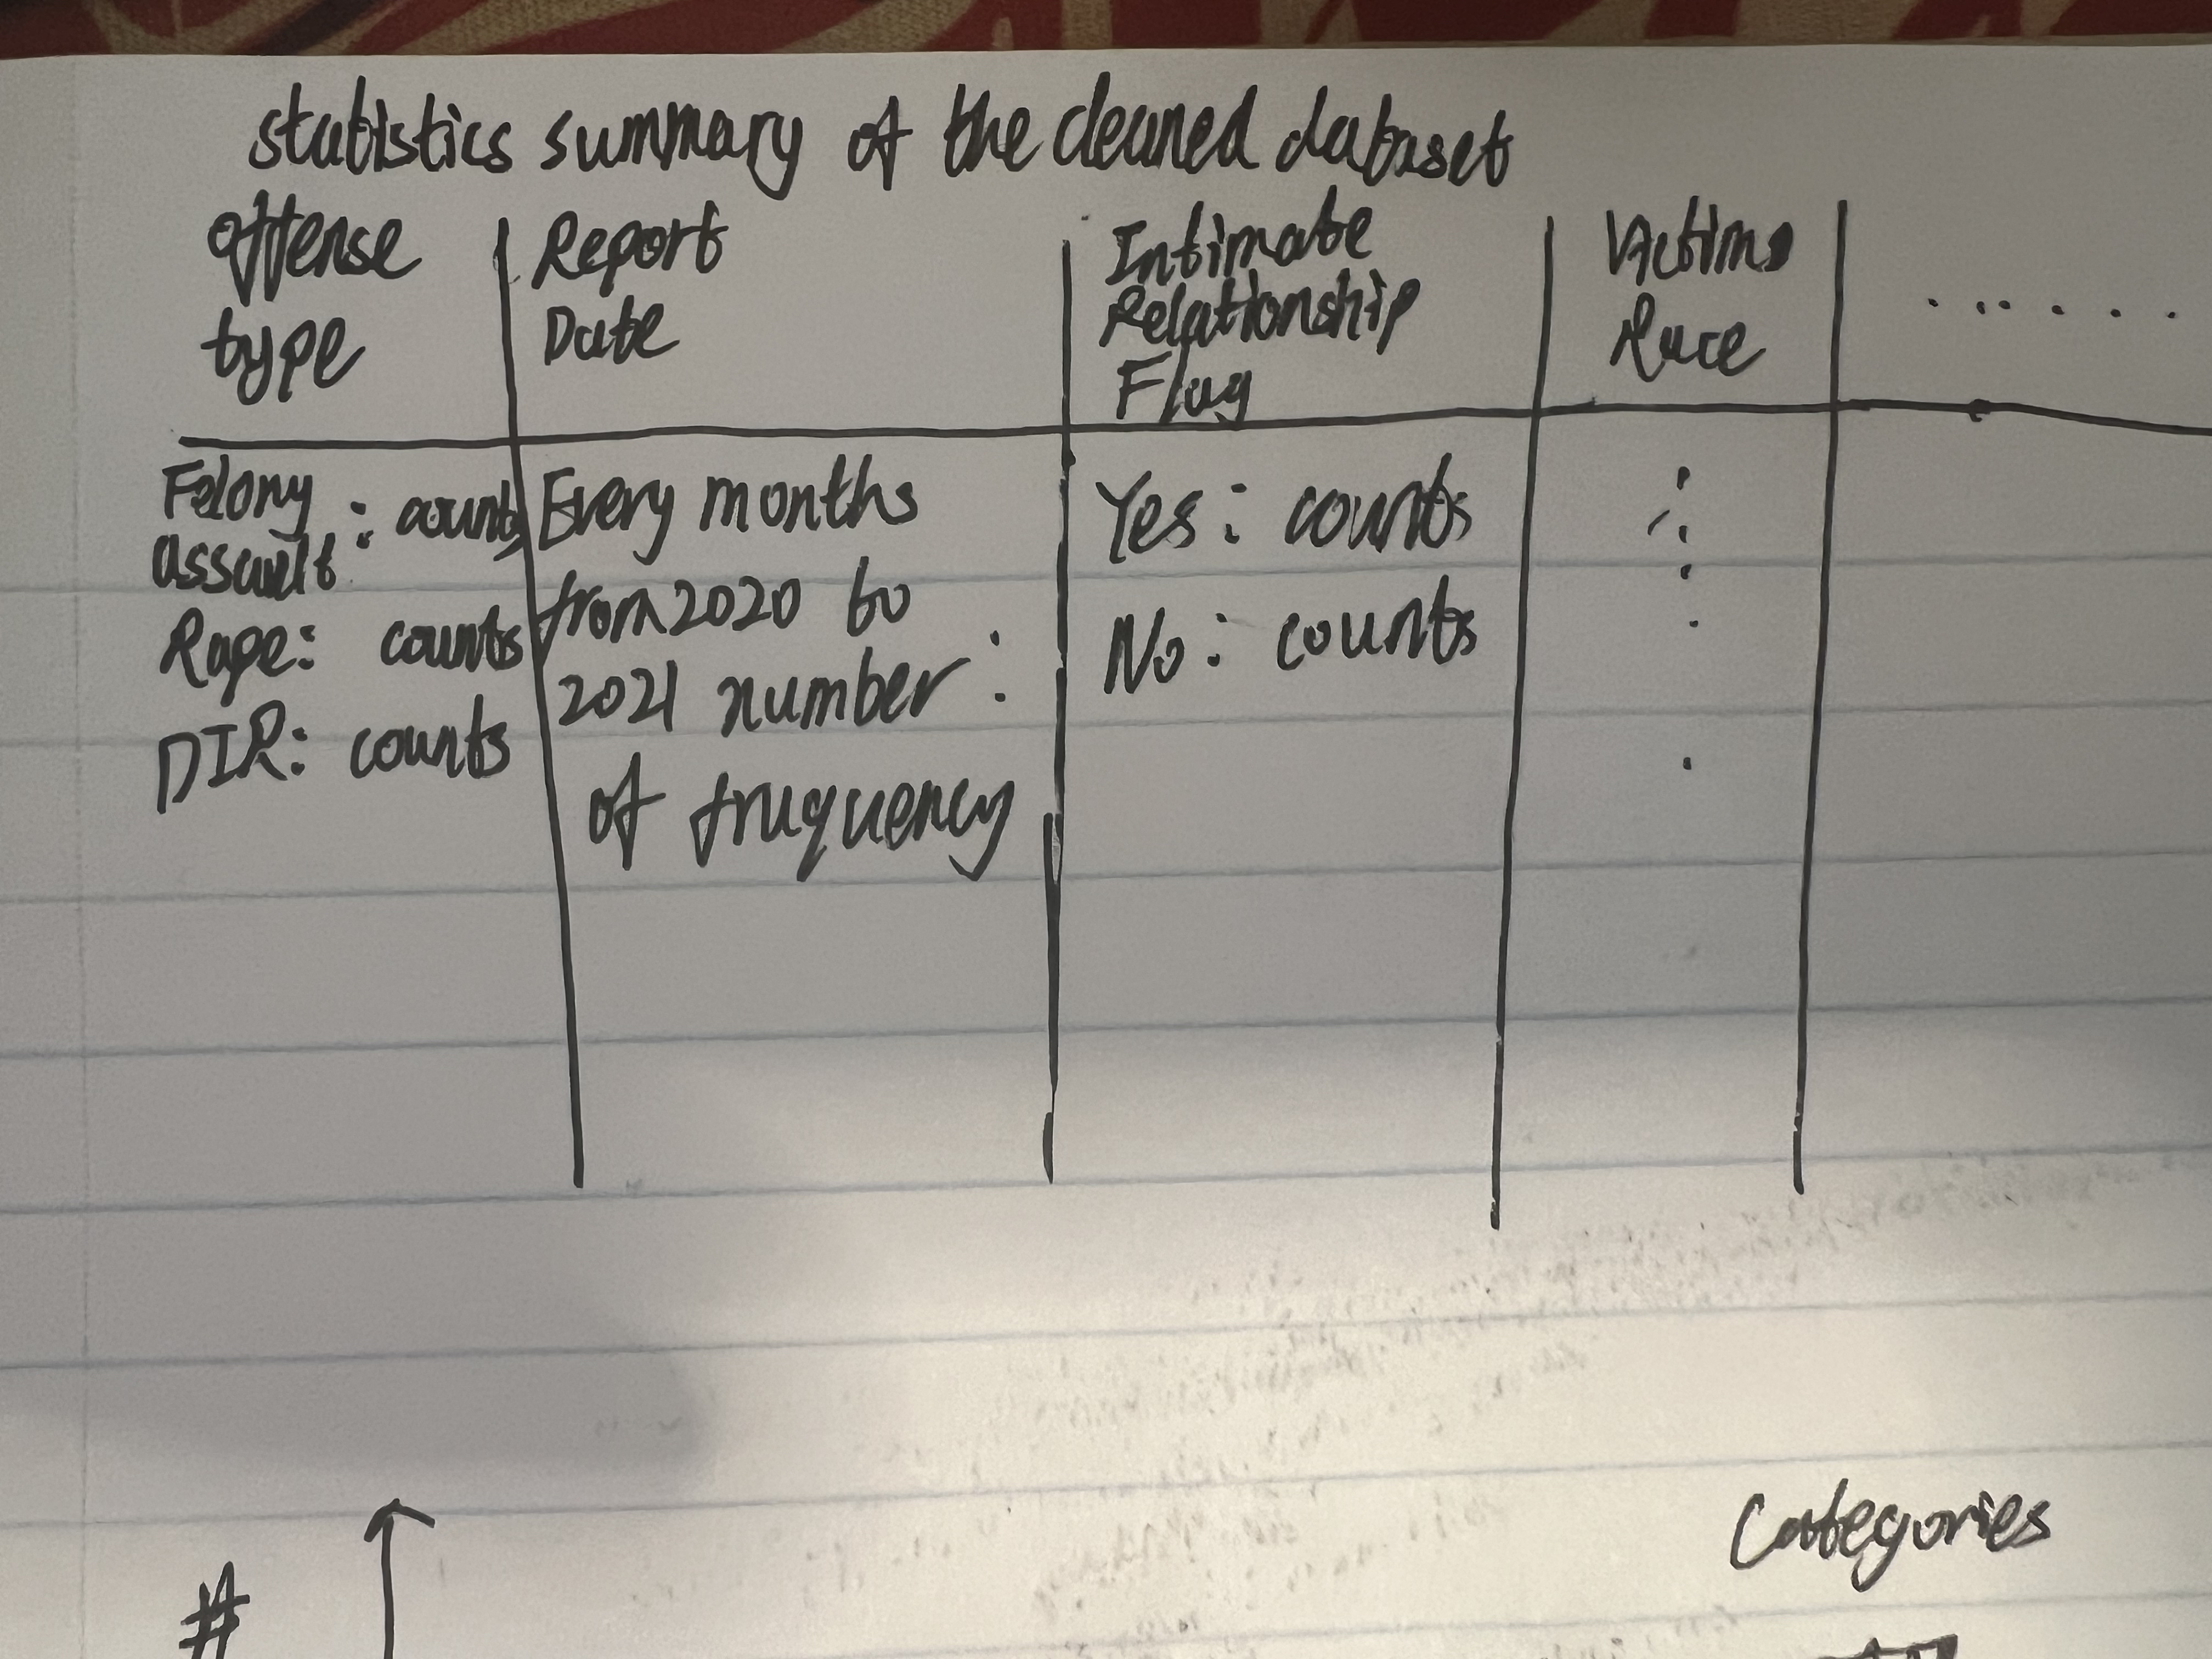 statistics summary of the cleaned dataset
offense type
Report Date
Intimate Relationship Flag
Victims Race
......
Felony assault : counts
Rape: counts
DIR: counts
Every months
from 2020 to
2021 number :
of fruquency
Yes: counts
No: counts
#
Categories